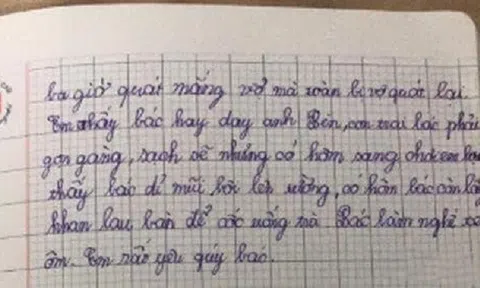 ba giờ quát mắng vợ mà toàn bị vợ quát lại.
Em thấy bác hay dạy anh Bên, con trai bác phải
gọn gàng, sạch sẽ nhưng có hôm sang chơi em
thấy bác dí mũi bôi lên tường, có hôm bác còn lấy
khăn lau bàn để cốc uống mà Bác làm nghề xe
ôm. Em rất yêu quý bác.